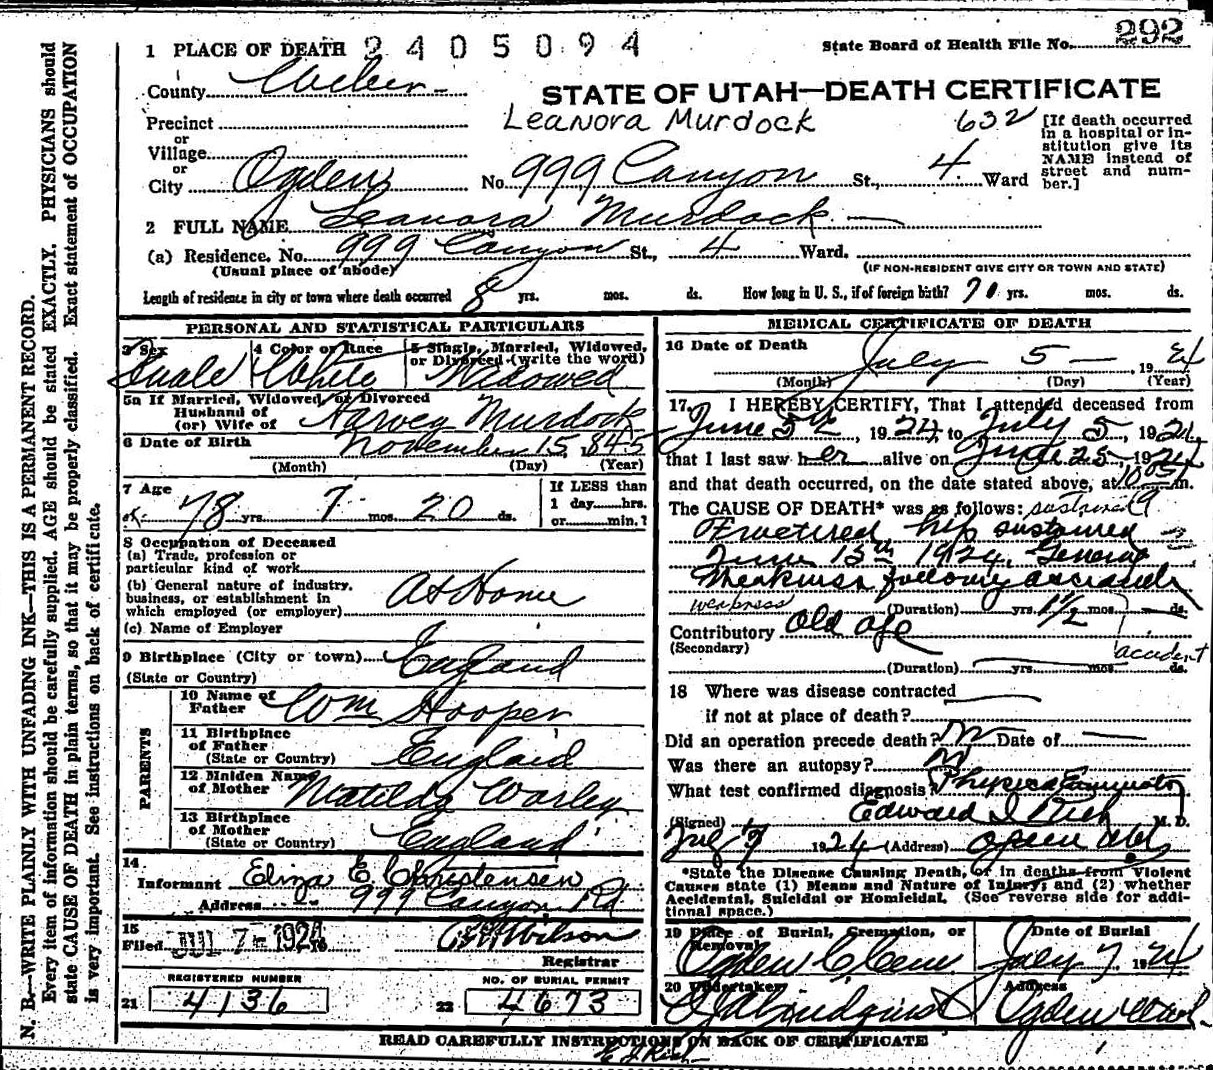 292
1 PLACE OF DEATH 2405094 State Board of Health File No.
County Weber
STATE OF UTAH—DEATH CERTIFICATE
Precinct
Leanora Murdock 632
or
Village
or
City Ogden No. 999 Canyon St., 4 Ward
[If death occurred
in a hospital or in-
stitution give its
NAME instead of
street and num-
ber.]
2 FULL NAME Leanora Murdock
(a) Residence. No. 999 Canyon St., 4 Ward.
(Usual place of abode)
(IF NON-RESIDENT GIVE CITY OR TOWN AND STATE)
Length of residence in city or town where death occurred 8 yrs. mos. ds. How long in U. S., if of foreign birth? 70 yrs. mos. ds.
PERSONAL AND STATISTICAL PARTICULARS
3 Sex 4 Color or Race 5 Single, Married, Widowed,
or Divorced (write the word)
White Widowed
5a If Married, Widowed, or Divorced
Husband of
(or) Wife of Harvey Murdock
6 Date of Birth November 15 1845
(Month) (Day) (Year)
7 Age 78 yrs. 7 mos. 20 ds.
If LESS than
1 day hrs.
or min.?
8 Occupation of Deceased
(a) Trade, profession or
particular kind of work
(b) General nature of industry,
business, or establishment in
which employed (or employer)
At Home
(c) Name of Employer
9 Birthplace (City or town) England
(State or Country)
PARENTS
10 Name of
Father Wm Hooper
11 Birthplace
of Father England
(State or Country)
12 Maiden Name
of Mother Matilda Worley
13 Birthplace
of Mother
(State or Country) England
14
Informant Eliza E. Christensen
Address 999 Canyon Rd
15
Filed JUL 7 - 1924 Wilson
Registrar
REGISTERED NUMBER NO. OF BURIAL PERMIT
21 4136 22 4673
MEDICAL CERTIFICATE OF DEATH
16 Date of Death July 5 — , 1924
(Month) (Day) (Year)
17. I HEREBY CERTIFY, That I attended deceased from
June 5, 1924, to July 5, 1924,
that I last saw her alive on June 25, 1924
and that death occurred, on the date stated above, at m.
The CAUSE OF DEATH* was as follows: sustained
Fractured hip sustained
June 15th 1924. General
Weakness following accident
weakness
(Duration) yrs. 1 1/2 mos. ds.
Contributory Old age
(Secondary)
accident
(Duration) yrs. mos. ds.
18 Where was disease contracted
if not at place of death?
Did an operation precede death? No Date of
Was there an autopsy? No
What test confirmed diagnosis? Physical Examination
(Signed) Edward I Rich M. D.
July 7 1924 (Address) Ogden Utah
*State the Disease Causing Death, or in deaths from Violent
Causes state (1) Means and Nature of Injury; and (2) whether
Accidental, Suicidal or Homicidal. (See reverse side for addi-
tional space.)
19 Place of Burial, Cremation, or
Removal
Date of Burial
Ogden C Cem July 7 1924
20 Undertaker Address
Lindquist Ogden Utah
READ CAREFULLY INSTRUCTIONS ON BACK OF CERTIFICATE
E I Rich
N. B.—WRITE PLAINLY WITH UNFADING INK—THIS IS A PERMANENT RECORD.
Every item of information should be carefully supplied. AGE should be stated EXACTLY. PHYSICIANS should
state CAUSE OF DEATH in plain terms, so that it may be properly classified. Exact statement of OCCUPATION
is very important. See instructions on back of certificate.